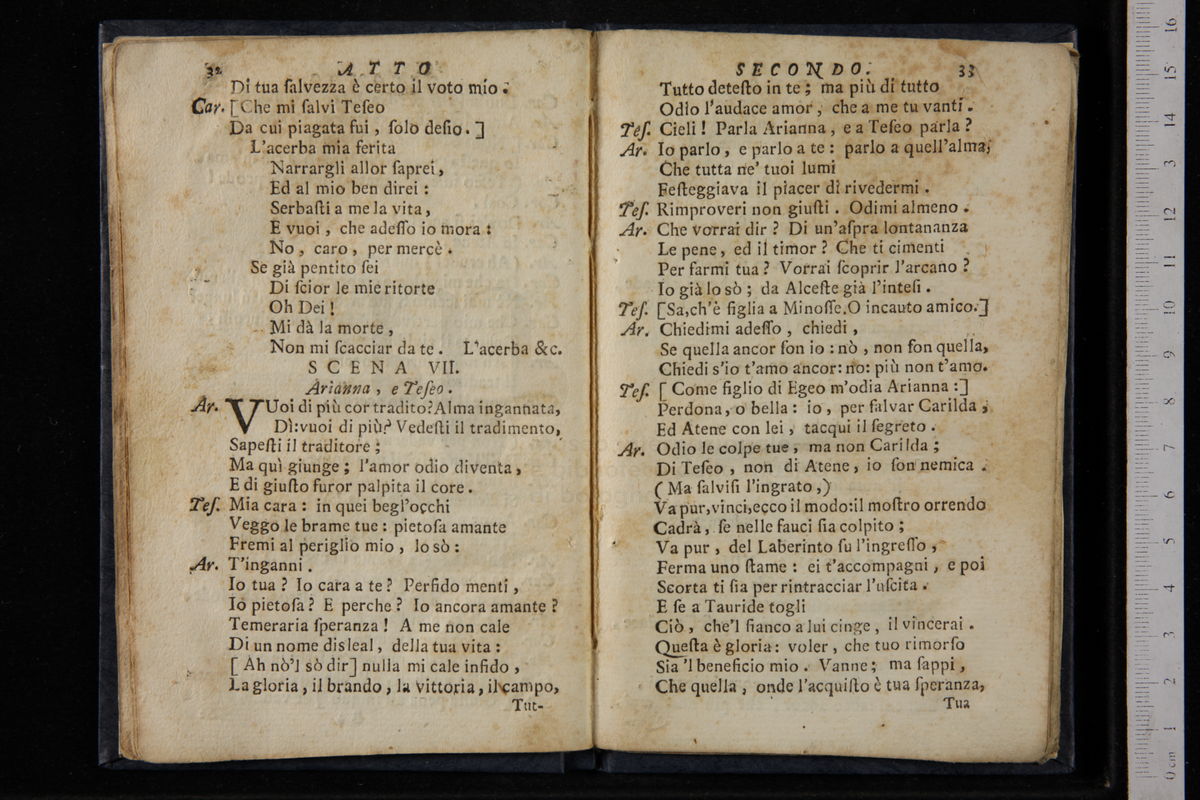 32 ATTO
Di tua ſalvezza è certo il voto mio.
Car. [Che mi ſalvi Teſeo
Da cui piagata fui, ſolo deſio.]
L'acerba mia ferita
Narrargli allor ſaprei,
Ed al mio ben direi:
Serbaſti a me la vita,
E vuoi, che adeſſo io mora:
No, caro, per mercè.
Se già pentito ſei
Di ſcior le mie ritorte
Oh Dei!
Mi dà la morte,
Non mi ſcacciar da te. L'acerba &c.
SCENA VII.
Arianna, e Teſeo.
Ar. VUoi di più cor tradito? Alma ingannata,
Dì: vuoi di più? Vedeſti il tradimento,
Sapeſti il traditore;
Ma quì giunge; l'amor odio diventa,
E di giuſto furor palpita il core.
Teſ. Mia cara: in quei begl'occhi
Veggo le brame tue: pietoſa amante
Fremi al periglio mio, lo sò:
Ar. T'inganni.
Io tua? Io cara a te? Perfido menti,
Io pietoſa? E perche? Io ancora amante?
Temeraria ſperanza! A me non cale
Di un nome disleal, della tua vita:
[Ah nò'l sò dir] nulla mi cale infido,
La gloria, il brando, la vittoria, il campo,
Tut-
SECONDO. 33
Tutto deteſto in te; ma più di tutto
Odio l'audace amor, che a me tu vanti.
Teſ. Cieli! Parla Arianna, e a Teſeo parla?
Ar. Io parlo, e parlo a te: parlo a quell'alma,
Che tutta ne' tuoi lumi
Feſteggiava il piacer di rivedermi.
Teſ. Rimproveri non giuſti. Odimi almeno.
Ar. Che vorrai dir? Di un'aſpra lontananza
Le pene, ed il timor? Che ti cimenti
Per farmi tua? Vorrai ſcoprir l'arcano?
Io già lo sò; da Alceſte già l'inteſi.
Teſ. [Sa, ch'è figlia a Minoſſe. O incauto amico.]
Ar. Chiedimi adeſſo, chiedi,
Se quella ancor ſon io: nò, non ſon quella,
Chiedi s'io t'amo ancor: no: più non t'amo.
Teſ. [Come figlio di Egeo m'odia Arianna:]
Perdona, o bella: io, per ſalvar Carilda,
Ed Atene con lei, tacqui il ſegreto.
Ar. Odio le colpe tue, ma non Carilda;
Di Teſeo, non di Atene, io ſon nemica.
(Ma ſalviſi l'ingrato,)
Va pur, vinci, ecco il modo: il moſtro orrendo
Cadrà, ſe nelle fauci ſia colpito;
Va pur, del Laberinto ſu l'ingreſſo,
Ferma uno ſtame: ei t'accompagni, e poi
Scorta ti ſia per rintracciar l'uſcita.
E ſe a Tauride togli
Ciò, che'l fianco a lui cinge, il vincerai.
Queſta è gloria: voler, che tuo rimorſo
Sia 'l beneficio mio. Vanne; ma ſappi,
Che quella, onde l'acquiſto è tua ſperanza,
Tua
0 cm 1 2 3 4 5 6 7 8 9 10 11 12 13 14 15 16